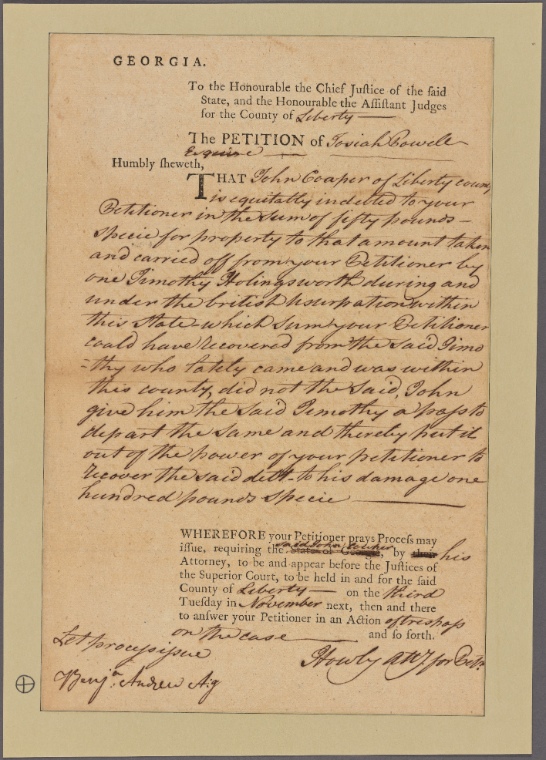 GEORGIA.
To the Honourable the Chief Justice of the said
State, and the Honourable the Assistant Judges
for the County of Liberty
The PETITION of Josiah Powell
Esquire
Humbly sheweth,
THAT John Cooper of Liberty county
is equitably indebted to your
Petitioner in the sum of fifty pounds
specie for property to that amount taken
and carried off from your Petitioner by
one Timothy Holingsworth during and
under the british Usurpation within
this State which Sum your Petitioner
could have recovered from the said Timo
-thy who lately came and was within
this county, did not the said, John
give him the said Timothy a pass to
depart the same and thereby put it
out of the power of your petitioner to
recover the said debt to his damage one
hundred pounds specie
WHEREFORE your Petitioner prays Process may
issue, requiring the said John, by his
Attorney, to be and appear before the Justices of
the Superior Court, to be held in and for the said
County of Liberty on the third
Tuesday in November next, then and there
to answer your Petitioner in an Action of trespass
on the case and so forth.
Let process issue
Howly atty for Petr.
Benjn. Andrew Aj